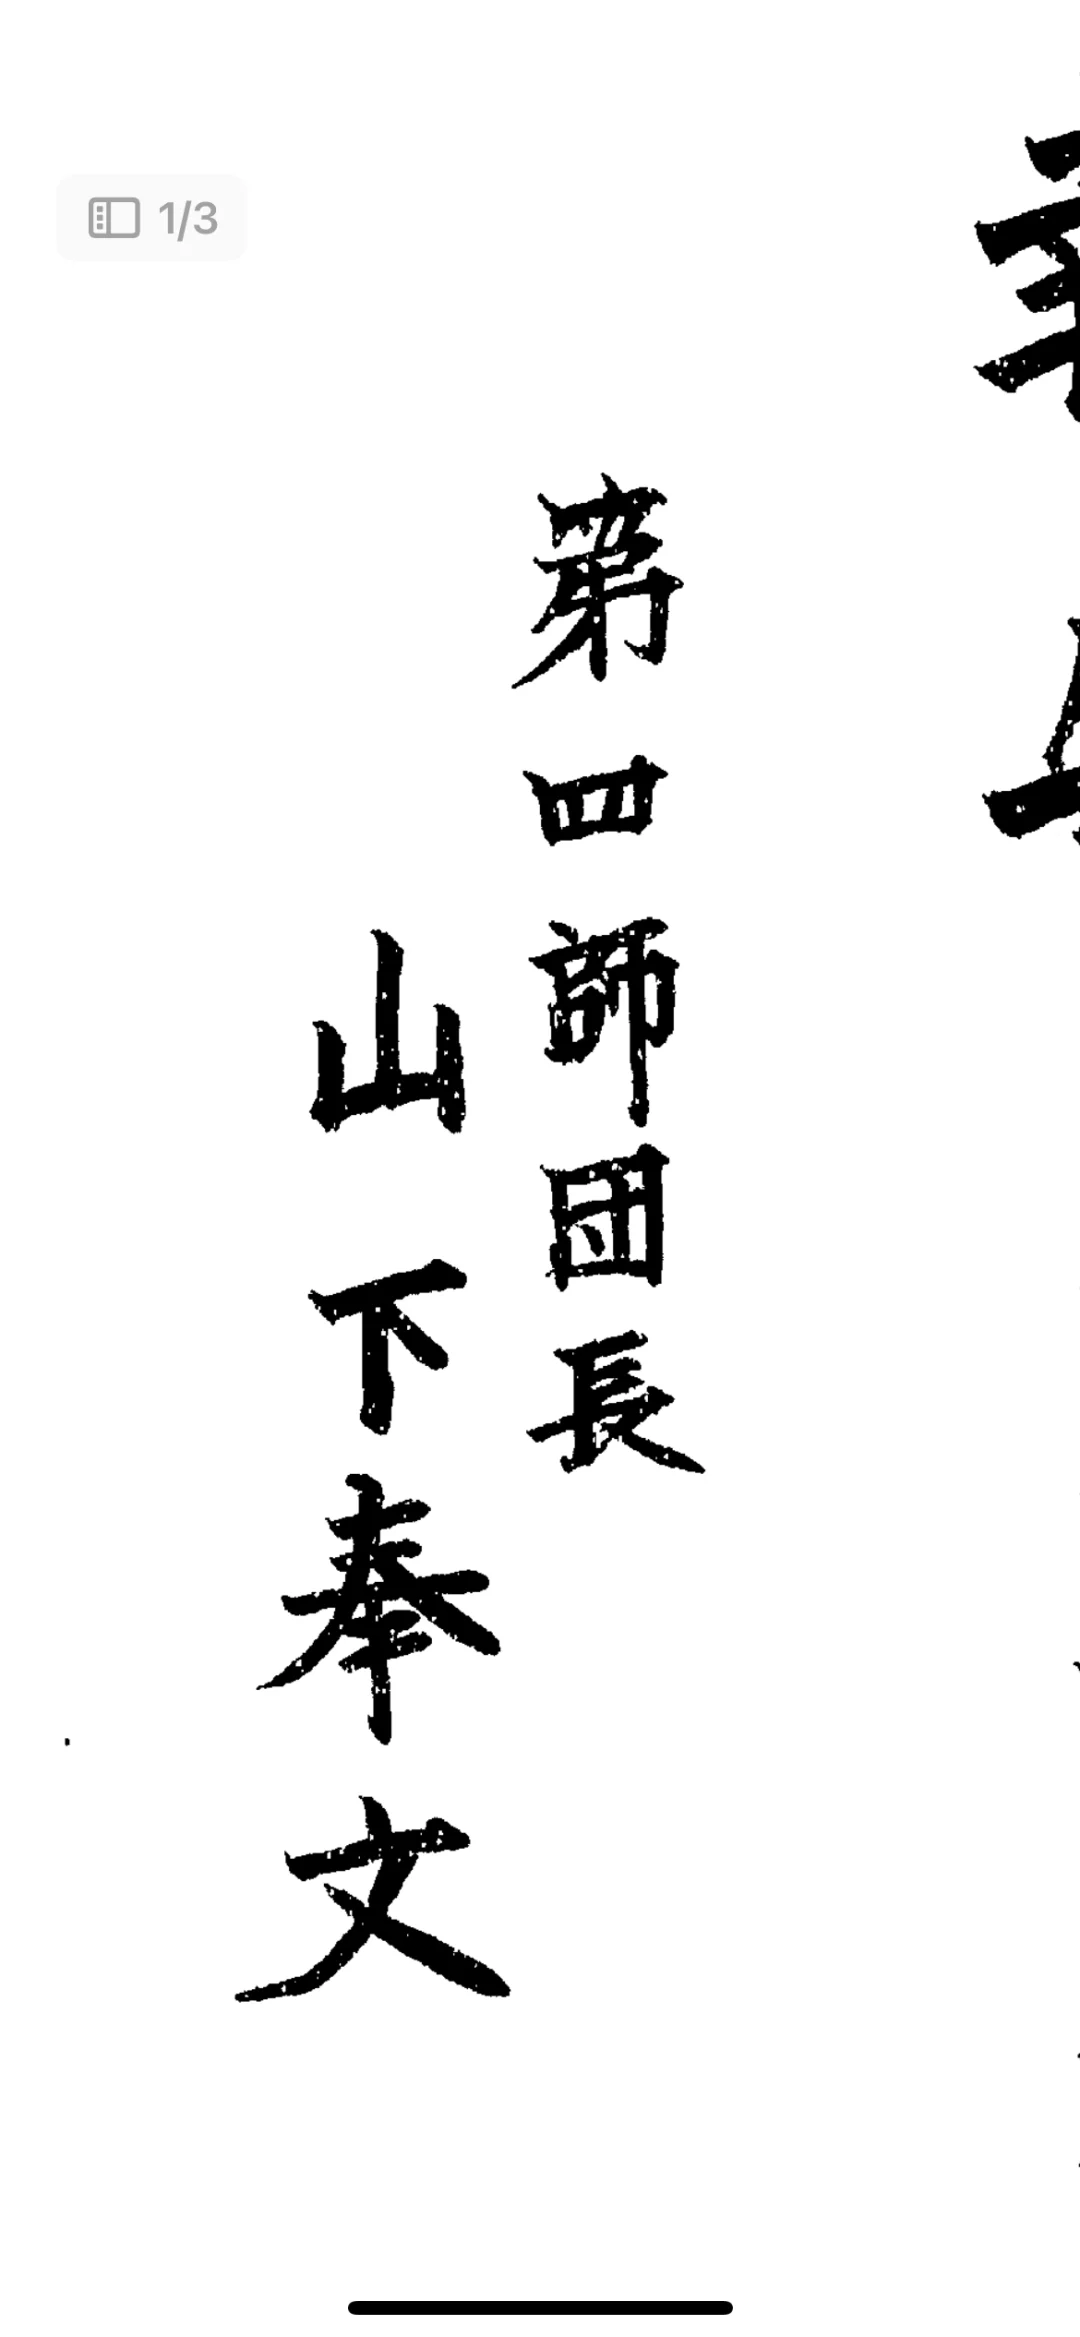 1/3
第四師団長
山下奉文